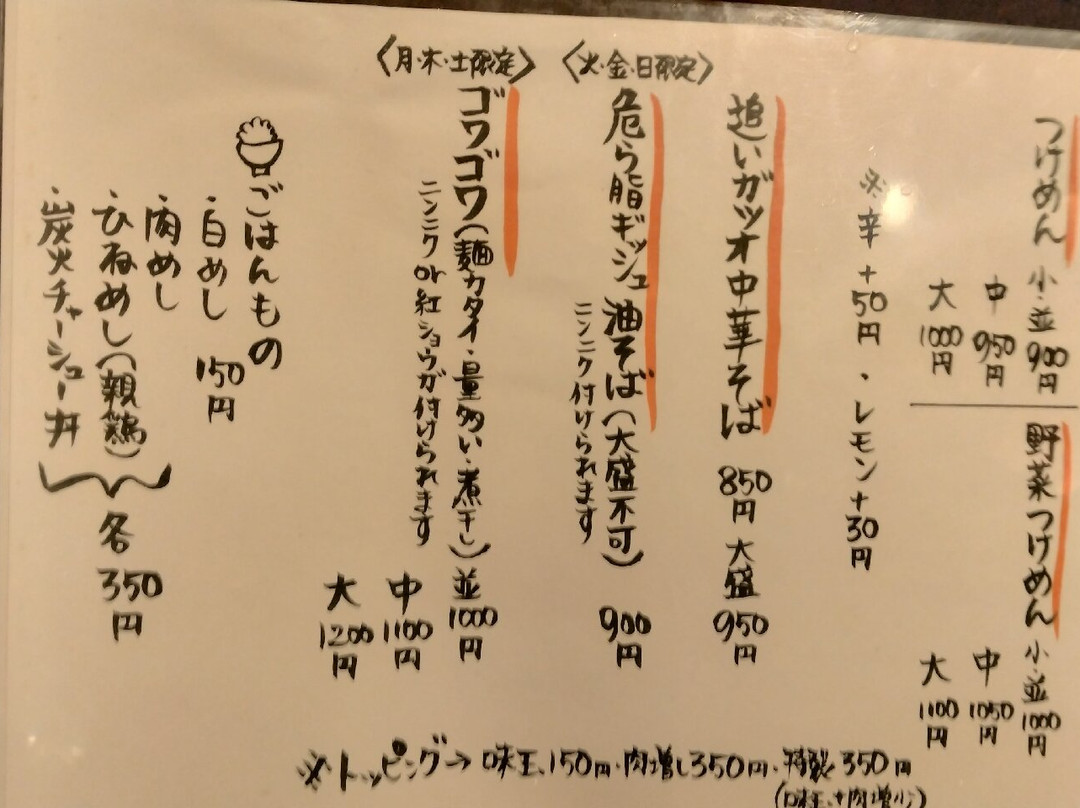 つけめん 小・並 900円
中 950円
大 1000円
野菜つけめん 小・並 1000円
中 1050円
大 1100円
※辛+50円・レモン+30円
追いガツオ中華そば 850円 大盛 950円
〈火・金・日限定〉
危ら脂ギッシュ油そば(大盛不可) 900円
ニンニク付けられます
〈月・木・土限定〉
ゴワゴワ(麺カタイ・量多い・煮干し) 並 1000円
ニンニクor紅ショウガ付けられます
中 1100円
大 1200円
ごはんもの
・白めし 150円
・肉めし
・ひねめし(親鶏)
・炭火チャーシュー丼
各350円
※トッピング→味玉、150円・肉増し350円・特製350円
(味玉+肉増少)